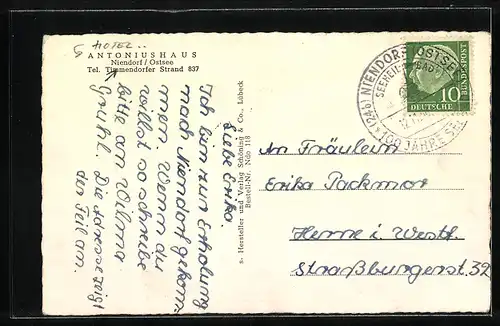 HOTEL..
ANTONIUSHAUS
Niendorf/Ostsee
Tel. Timmendorfer Strand 837
Liebe Erika.
Ich bin zur Erholung
nach Niendorf gekom-
men. Wenn du
willst so schreibe
bitte an Wilma
Gruhl. Die Adresse zeigt
der Pfeil an.
s. Hersteller und Verlag Schöning & Co., Lübeck
Bestell-Nr. Ndo 118
(24b) NIENDORF OSTSEE
100 JAHRE SEE
DEUTSCHE
BUNDESPOST
10
An Fräulein
Erika Packmor
Herne i. Westf.
Straßburgerst. 32